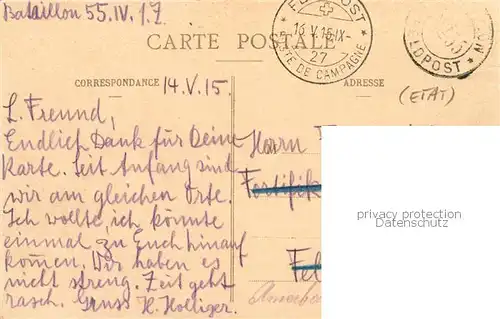 Bataillon 55. IV. 1. Z
FELDPOST
16.V.15.IX-
27
POSTE DE CAMPAGNE
FELDPOST
CARTE POSTALE
CORRESPONDANCE
14.V.15.
ADRESSE
(ETAT)
L. Freund,
Endlich Dank für Deine
Karte. Seit Anfang sind
wir am gleichen Orte.
Ich wollte, ich könnte
einmal zu Euch hinauf
kommen. Wir haben es
nicht streng. Zeit geht
rasch. Gruss H. Holliger.
Herrn
Fortifik
Fel
privacy protection
Datenschutz